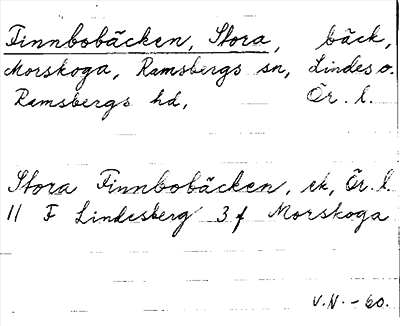 Finnbobäcken, Stora, bäck,
Morskoga, Ramsbergs sn, Lindes o.
Ramsbergs hd, Ör. l.
Stora Finnbobäcken, ek, Ör. l
11 F Lindesberg 3 f Morskoga
V.N. - 60.